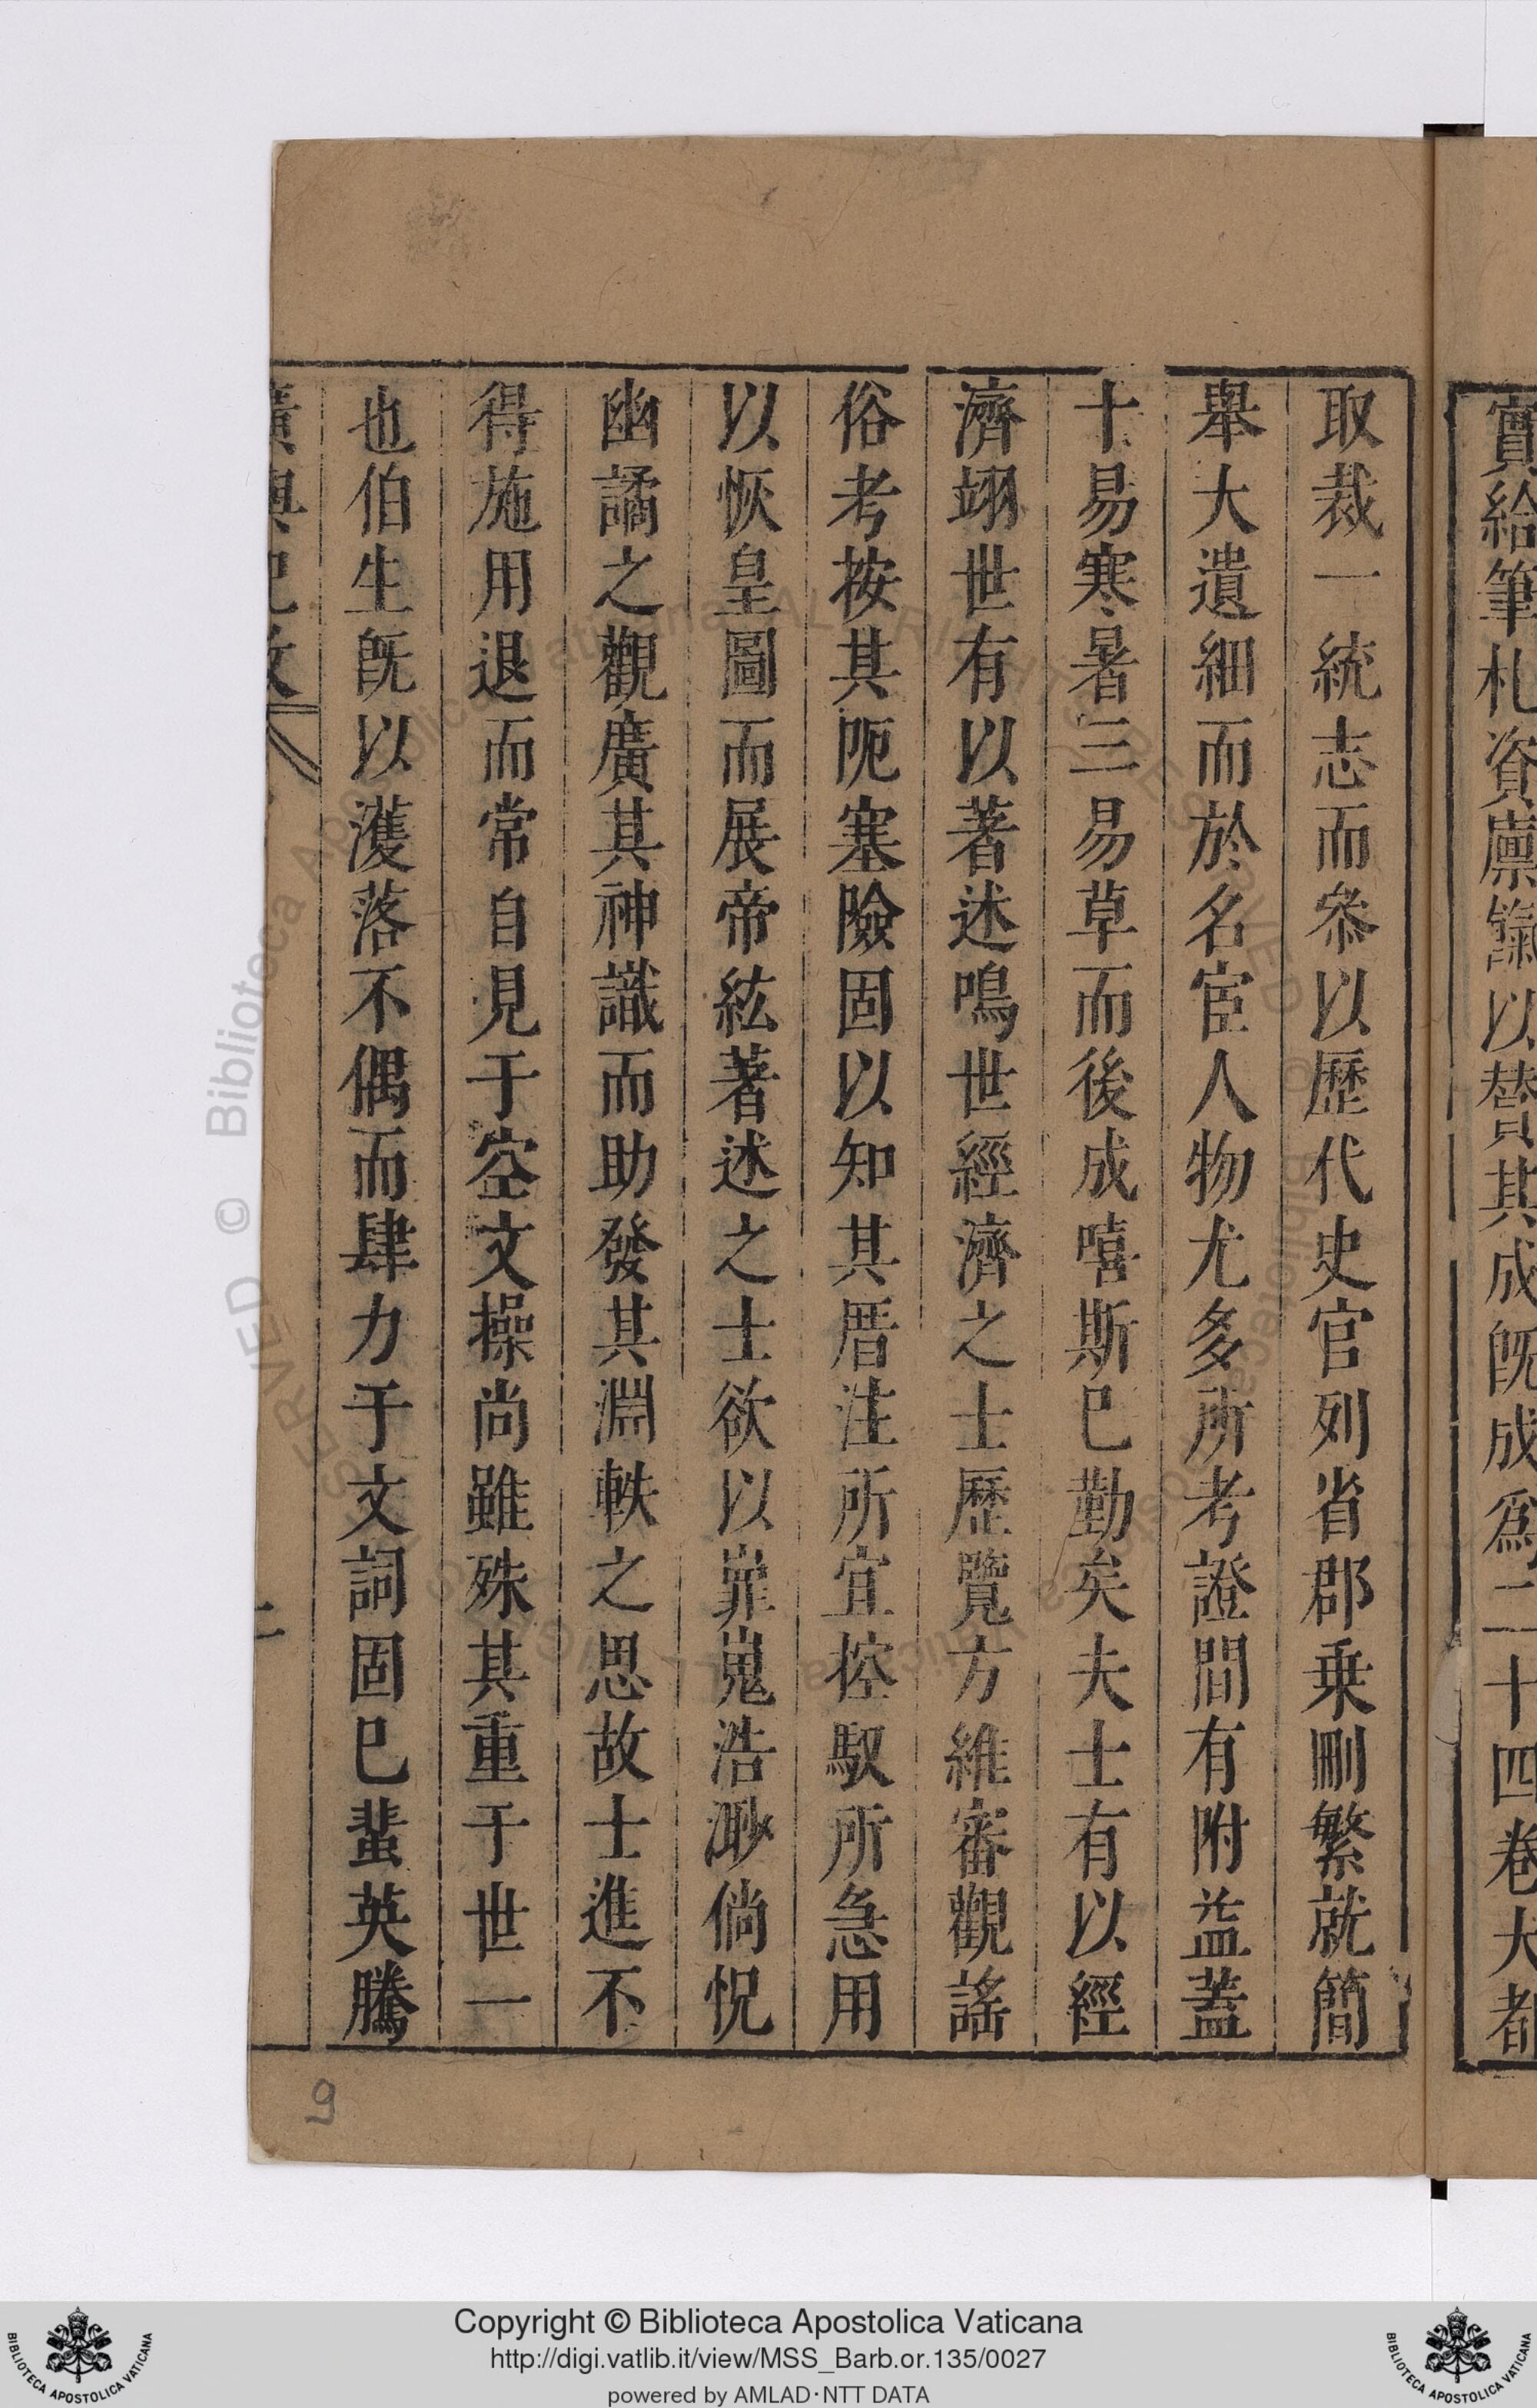 實給筆札資廪餼以賛其成旣成爲二十四卷大都
取裁一統志而叅以歷代史官列省郡乗刪繁就簡
舉大遺細而於名宦人物尤多所考證間有附益蓋
十易寒暑三易草而後成嘻斯巳勤矣夫士有以經
濟翊世有以著述鳴世經濟之士歷覽方維審觀謠
俗考按其阨塞險固以知其厝注所宜控馭所急用
以恢皇圖而展帝紘著述之士欲以嶵嵬浩渺倘怳
幽譎之觀廣其神識而助發其淵軼之思故士進不
得施用退而常自見于空文操尚雖殊其重于世一
也伯生旣以濩落不偶而肆力于文詞固巳蜚英騰
廣輿記敘
二
9
© Biblioteca Apostolica Vaticana ALL RIGHTS RESERVED
Copyright © Biblioteca Apostolica Vaticana
http://digi.vatlib.it/view/MSS_Barb.or.135/0027
powered by AMLAD·NTT DATA
BIBLIOTECA APOSTOLICA VATICANA
BIBLIOTECA APOSTOLICA VATICANA